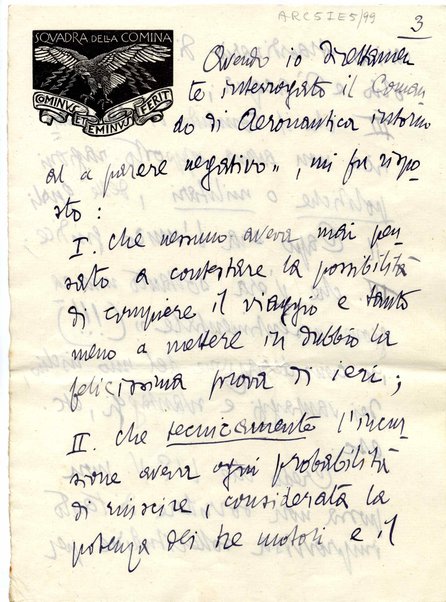 ARC5IE5/99
3
SQVADRA DELLA COMINA
COMINVS ET EMINVS FERIT
Avendo io direttamen
te interrogato il Coman
do di Aeronautica intorno
al a parere negativo", mi fu rispo
sto:
I. che nessuno aveva mai pen
sato a contestare la possibilità
di compiere il viaggio e tanto
meno a mettere in dubbio la
felicissima prova di ieri;
II. che tecnicamente l'incur
sione aveva ogni probabilità
di riuscire, considerata la
potenza dei tre motori e il